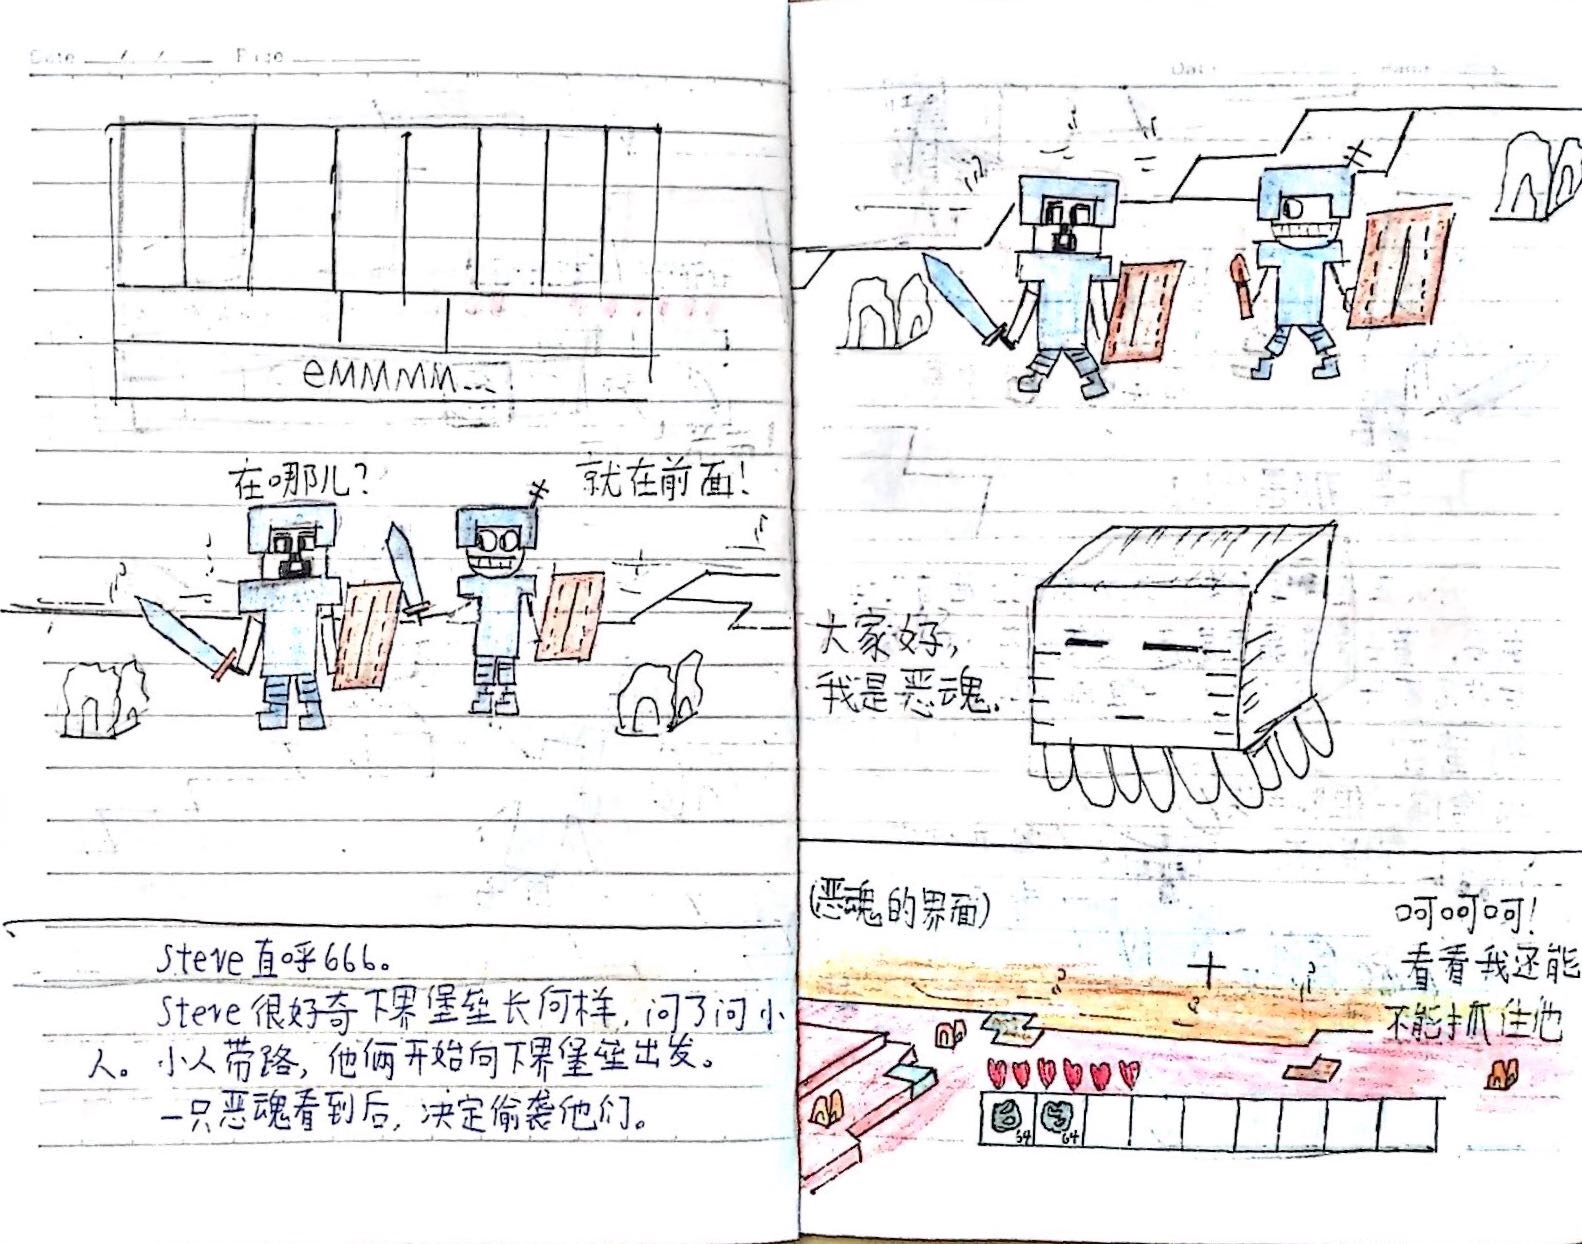 Date / / Page
eMMMM...
在哪儿?
就在前面!
Steve直呼666。
Steve很好奇下界堡垒长何样,问了问小
人。小人带路,他俩开始向下界堡垒出发。
一只恶魂看到后,决定偷袭他们。
大家好,
我是恶魂.
(恶魂的界面)
呵呵呵!
看看我还能
不能抓住他
64
64